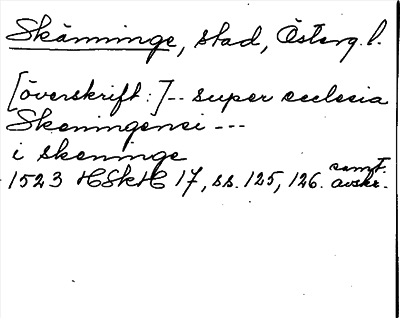 Skänninge, stad, Österg. l.
[överskrift:] -- super ecclesia
Skeningensi ---
i skeninge
1523 HSkH 17, ss. 125, 126. samt. avskr.